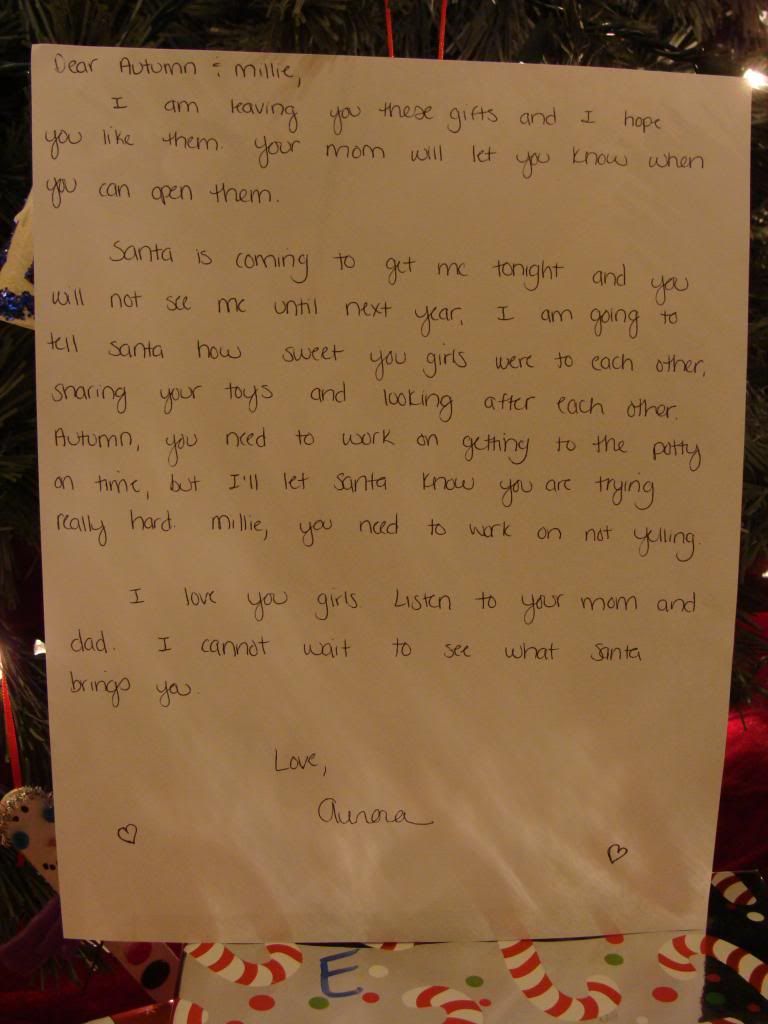 Dear Autumn & Millie,
I am leaving you these gifts and I hope
you like them. Your mom will let you know when
you can open them.
Santa is coming to get me tonight and you
will not see me until next year. I am going to
tell Santa how sweet you girls were to each other,
sharing your toys and looking after each other.
Autumn, you need to work on getting to the potty
on time, but I'll let Santa know you are trying
really hard. Millie, you need to work on not yelling.
I love you girls. Listen to your mom and
dad. I cannot wait to see what Santa
brings you.
Love,
Aurora
E